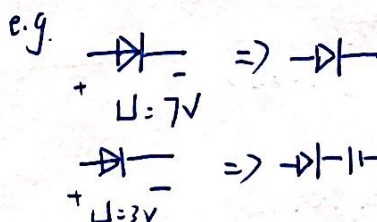 e.g.
+ -
U=7V
=>
+ -
U=3V
=>